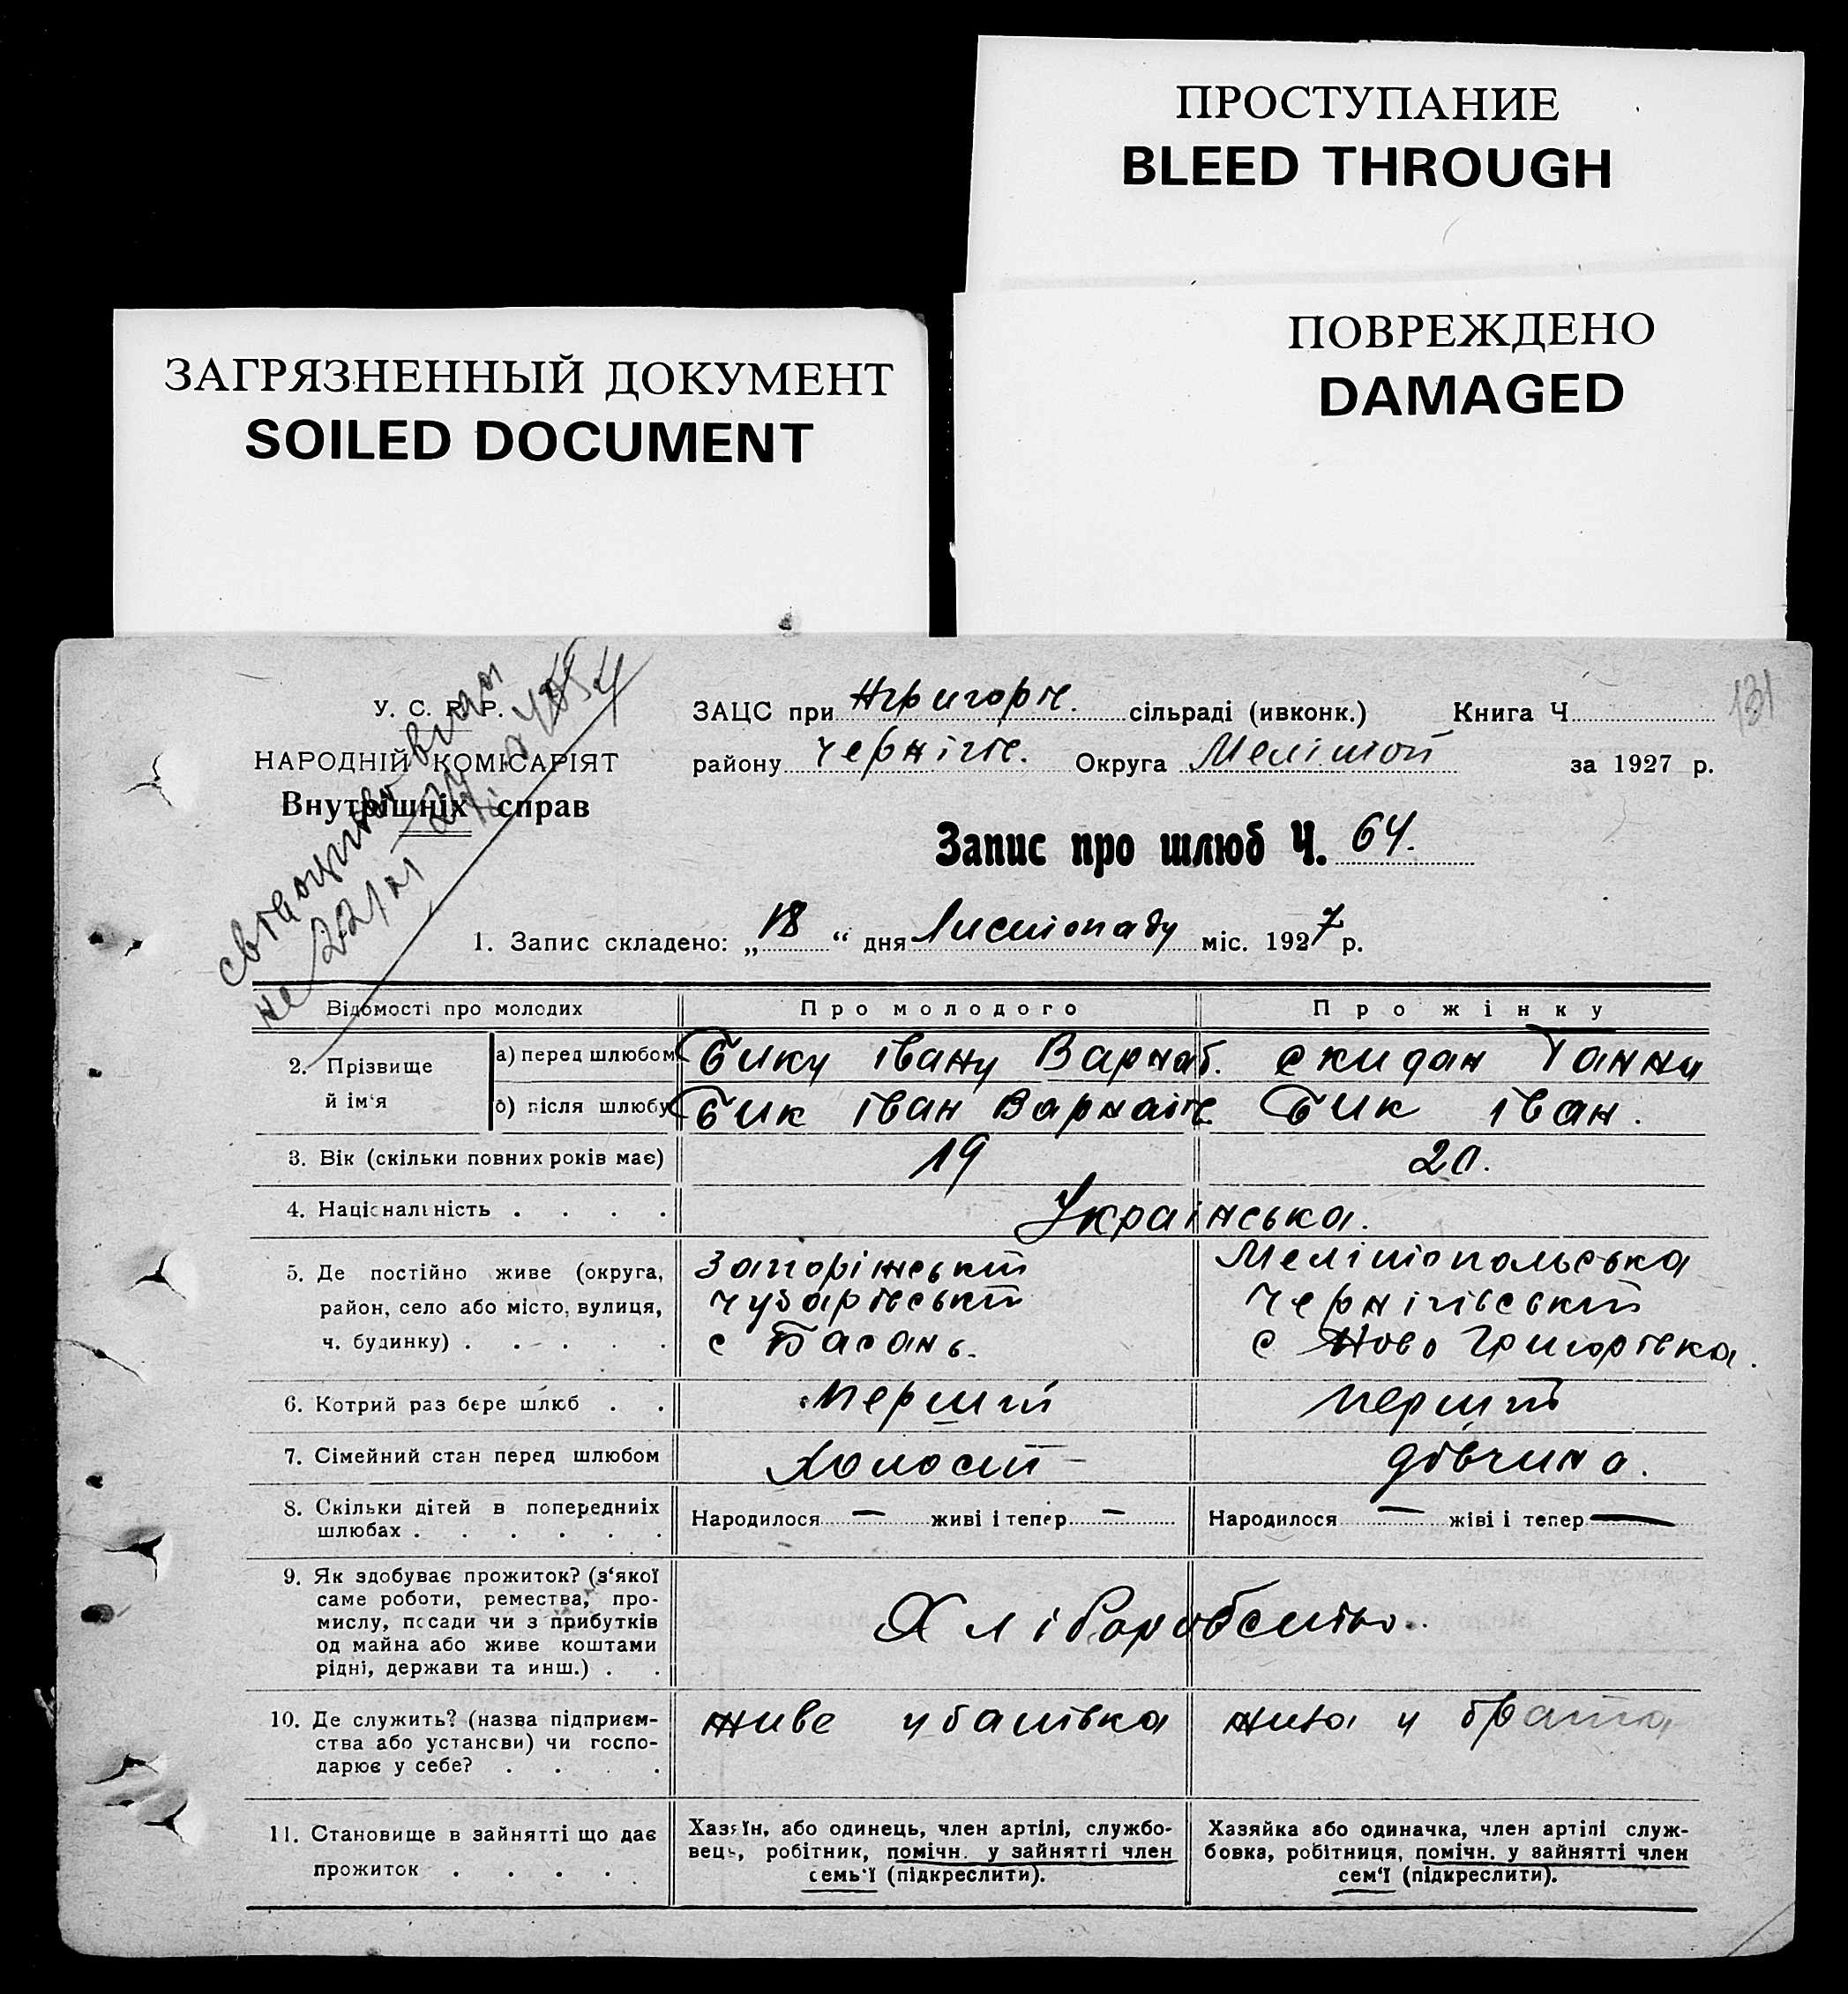 ПРОСТУПАНИЕ
BLEED THROUGH
ПОВРЕЖДЕНО
DAMAGED
ЗАГРЯЗНЕННЫЙ ДОКУМЕНТ
SOILED DOCUMENT
131
У. С. Р. Р.
НАРОДНІЙ КОМІСАРІЯТ
Внутрішніх справ
ЗАЦС при Нгригорів. сільраді (ивконк.) Книга Ч.
району Чернігів. Округа Мелітой за 1927 р.
Запис про шлюб Ч. 64.
1. Запис складено: „18“ дня Листопаду міс. 1927 р.
Відомості про молодих Про молодого Про жінку
2. Прізвище й ім'я
а) перед шлюбом Бику Івану Варнав. Скидан Ганни
б) після шлюбу Бик Іван Варнаів. Бик Іван.
3. Вік (скільки повних років має) 19 20.
4. Національність . . . . Українська.
5. Де постійно живе (округа, Запоріжський Мелітопольська
район, село або місто, вулиця, Чубарівський Чернігівський
ч. будинку) . . . . . с Басань. с Ново Григорівка.
6. Котрий раз бере шлюб . . Перший Перший
7. Сімейний стан перед шлюбом Холостий дівчина.
8. Скільки дітей в попередниіх Народилося — живі і тепер — Народилося — жіві і тепер —
шлюбах . . . . . .
9. Як здобуває прожиток? (з'якої
саме роботи, ремества, про-
мислу, посади чи з прибутків Хліборобство.
од майна або живе коштами
рідні, держави та инш.) . .
10. Де служить? (назва підприєм- живе у батівка жива у брата
ства або устансви) чи госпо-
дарює у себе? . . . .
11. Становище в зайнятті що дає
прожиток . . . .
Хазяїн, або одинець, член артілі, службо-
вець, робітник, помічн. у зайнятті член
семь'ї (підкреслити).
Хазяйка або одиначка, член артілі служ-
бовка, робітниця, помічн. у зайнятті член
сем'ї (підкреслити).